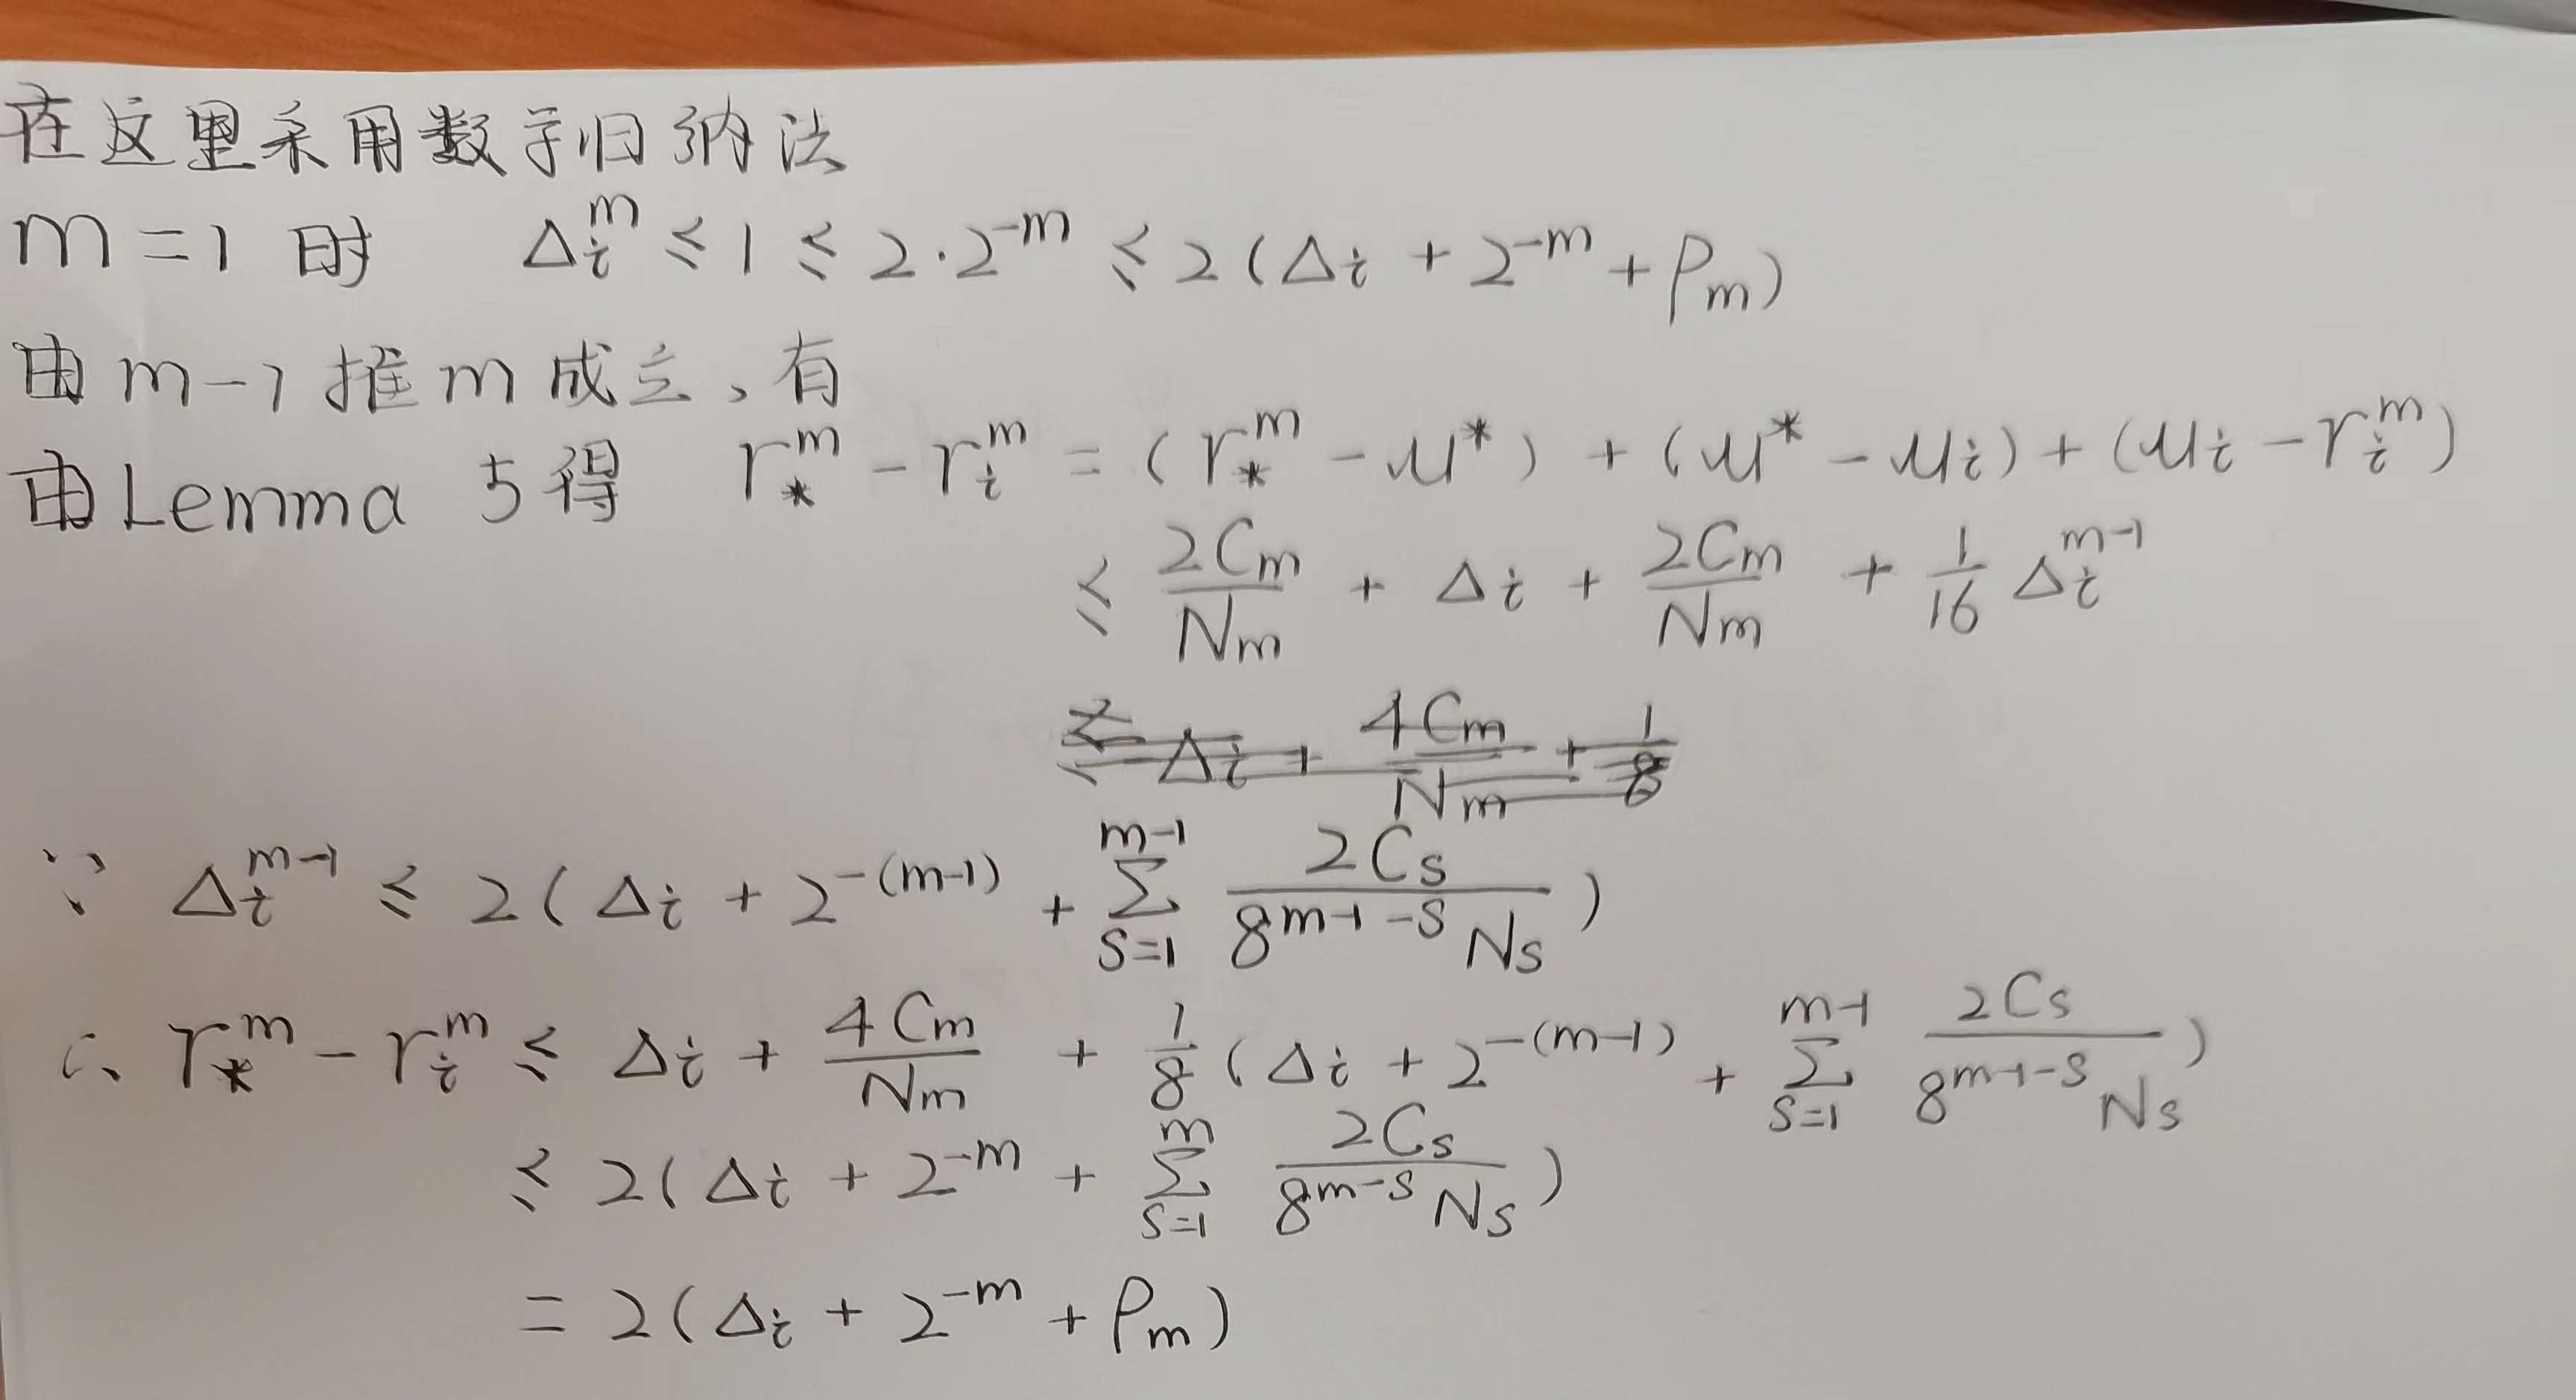 在这里采用数学归纳法
m=1 时 Δ_i^m ≤ 1 ≤ 2·2^{-m} ≤ 2(Δ_i + 2^{-m} + ρ_m)
由 m-1 推 m 成立、有
由 Lemma 5 得 r_*^m - r_i^m = (r_*^m - μ^*) + (μ^* - μ_i) + (μ_i - r_i^m)
≤ \frac{2C_m}{N_m} + Δ_i + \frac{2C_m}{N_m} + \frac{1}{16} Δ_i^{m-1}
≤ Δ_i + \frac{4C_m}{N_m} + \frac{1}{8}
∵ Δ_i^{m-1} ≤ 2(Δ_i + 2^{-(m-1)} + \sum_{s=1}^{m-1} \frac{2C_s}{8^{m-1-s} N_s})
∴ r_*^m - r_i^m ≤ Δ_i + \frac{4C_m}{N_m} + \frac{1}{8}(Δ_i + 2^{-(m-1)} + \sum_{s=1}^{m-1} \frac{2C_s}{8^{m-1-s} N_s})
≤ 2(Δ_i + 2^{-m} + \sum_{s=1}^{m} \frac{2C_s}{8^{m-s} N_s})
= 2(Δ_i + 2^{-m} + ρ_m)